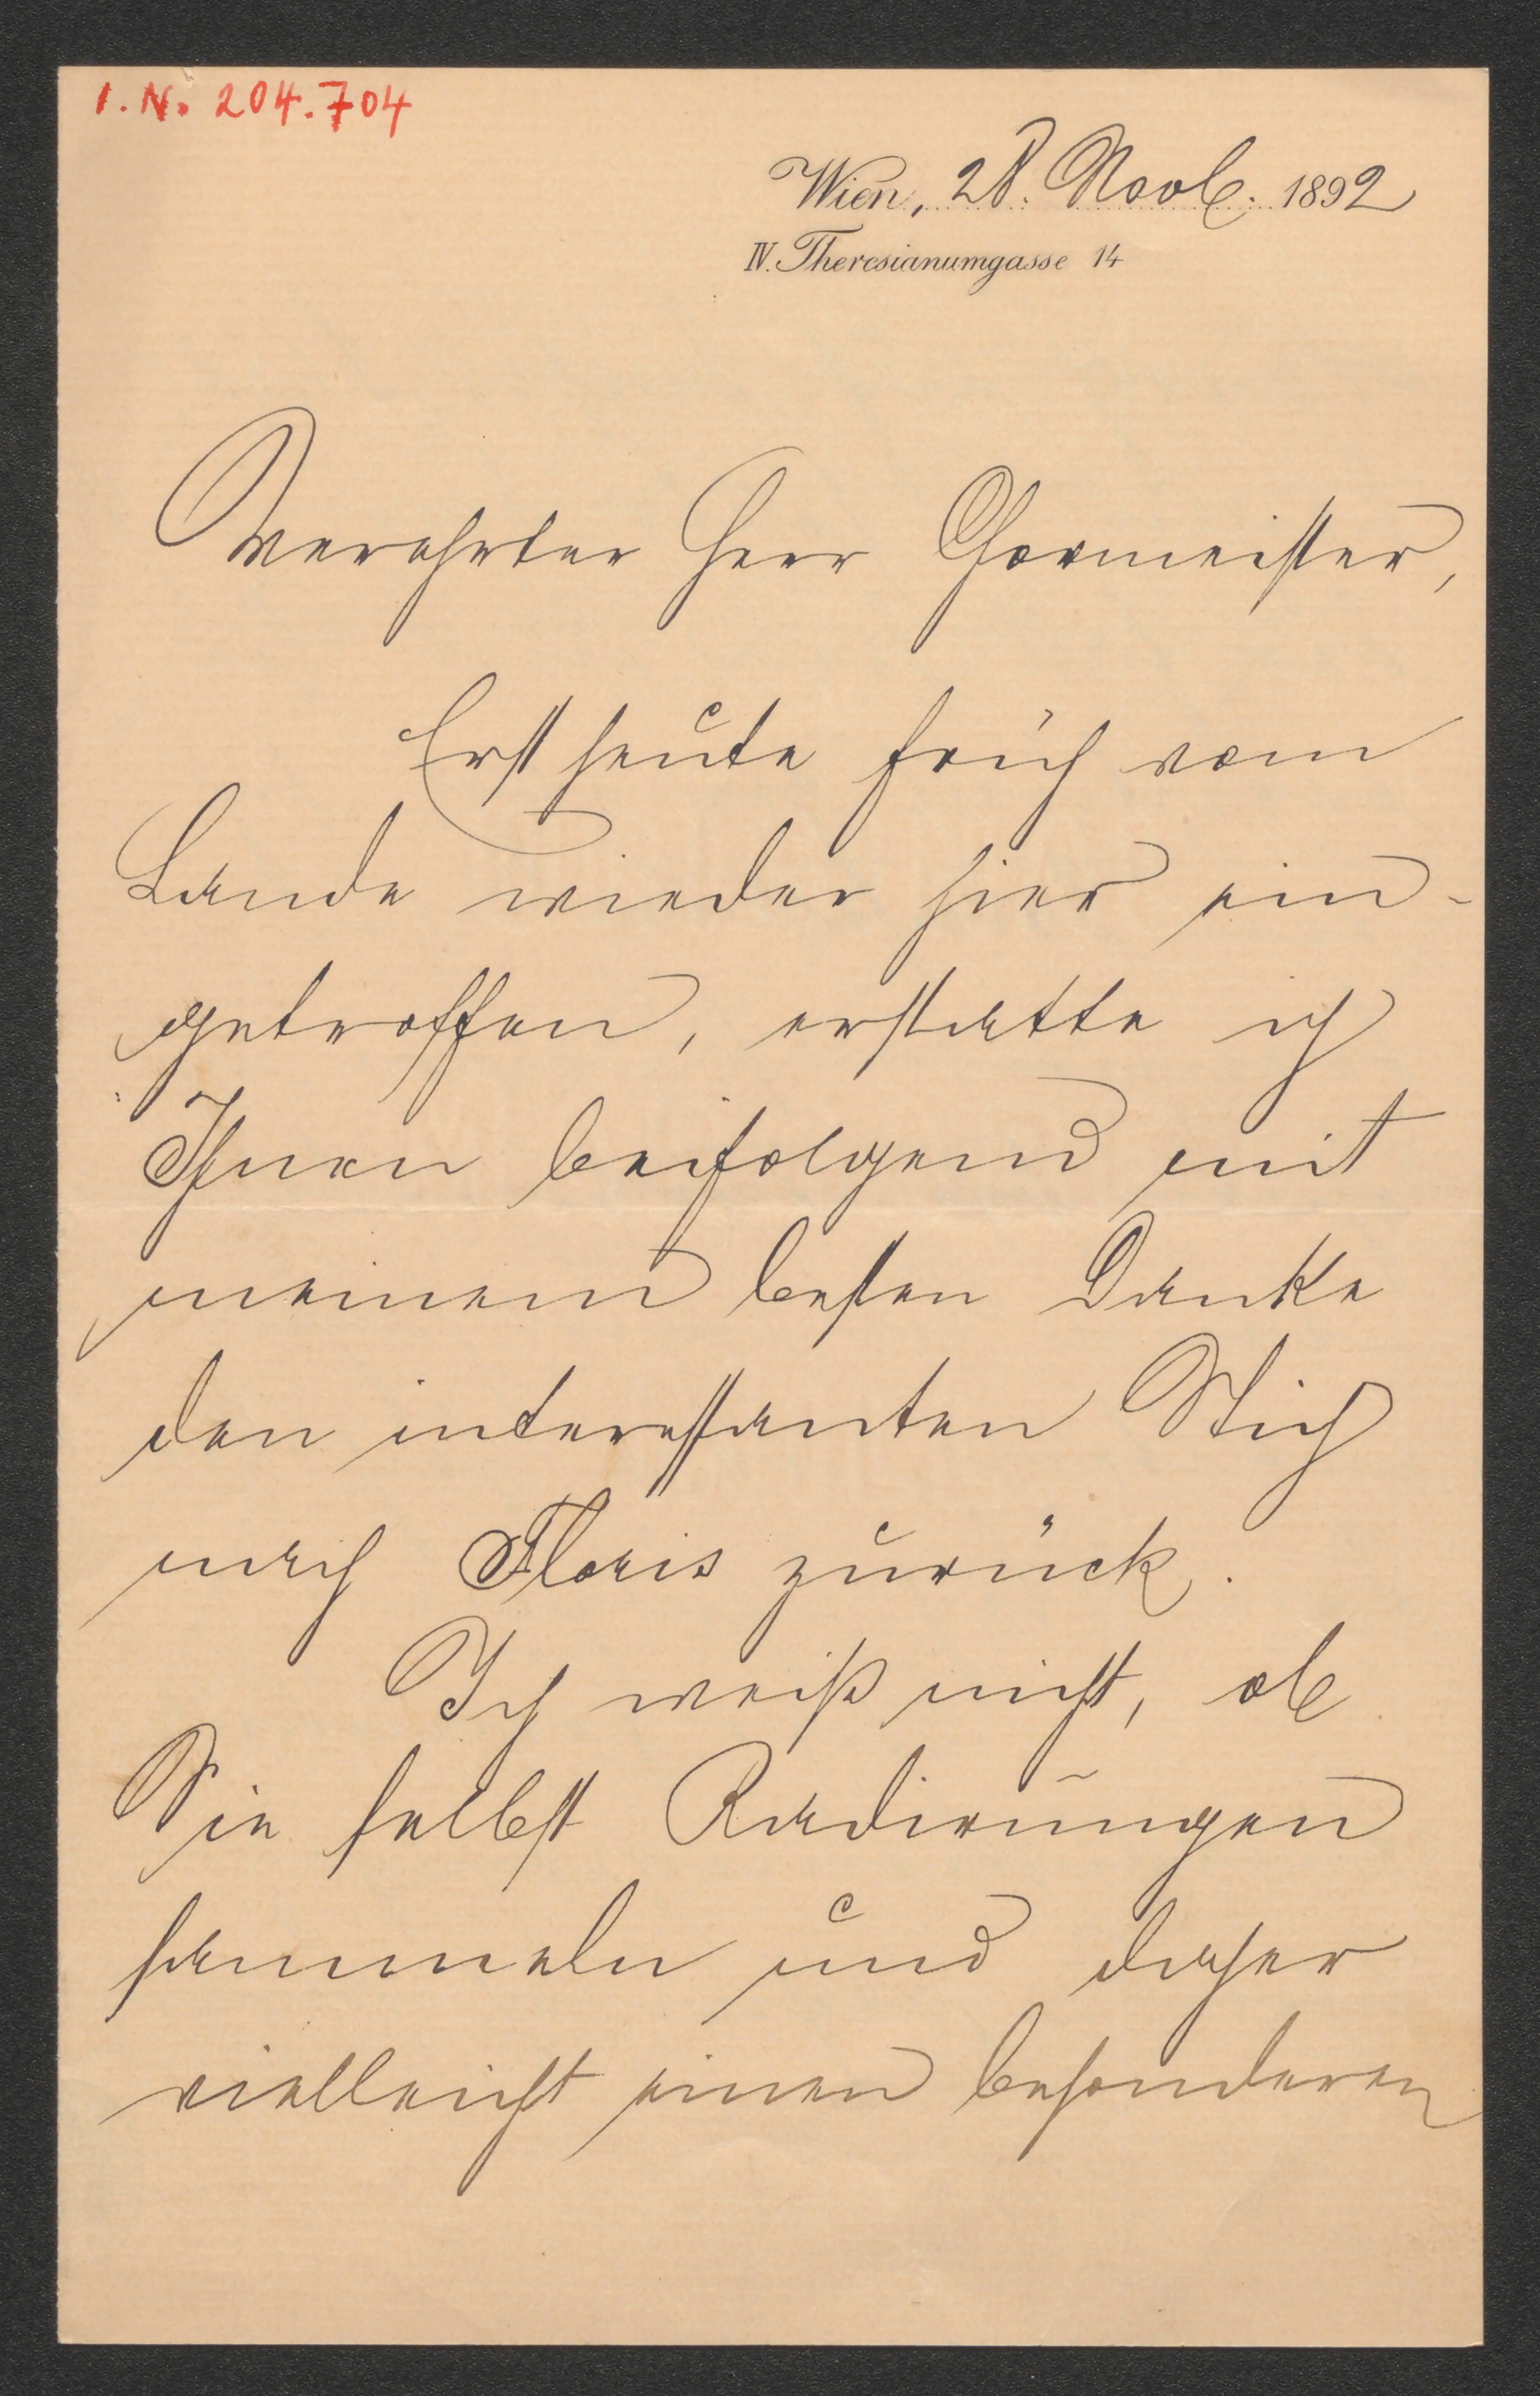 I. N. 204.704
Wien, 28. Novb. 1892
IV. Theresianumgasse 14
Verehrter Herr Chormeister,
Erst heute früh vom
Lande wieder hier ein-
getroffen, erstatte ich
Ihnen beifolgend mit
meinem besten Danke
den interessanten Stich
nach Floris zurück.
Ich weiß nicht, ob
Sie selbst Radirungen
sammeln und daher
vielleicht einen besonderen